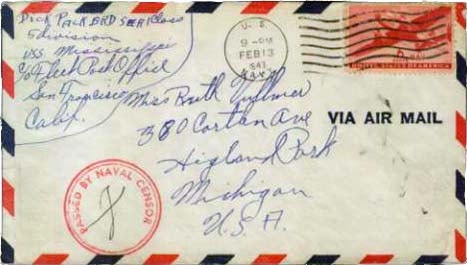 Dick Packard Sea 1 Class
5 division
USS. Mississippi
c/o Fleet Post Office
San Francisco
Calif.
U. S.
9 - PM
FEB 13
194
NAVY
UNITED STATES OF AMERICA
Miss Ruth
380 Cortan Ave
Higland Park
Michigan
U.S.A.
VIA AIR MAIL
PASSED BY NAVAL CENSOR